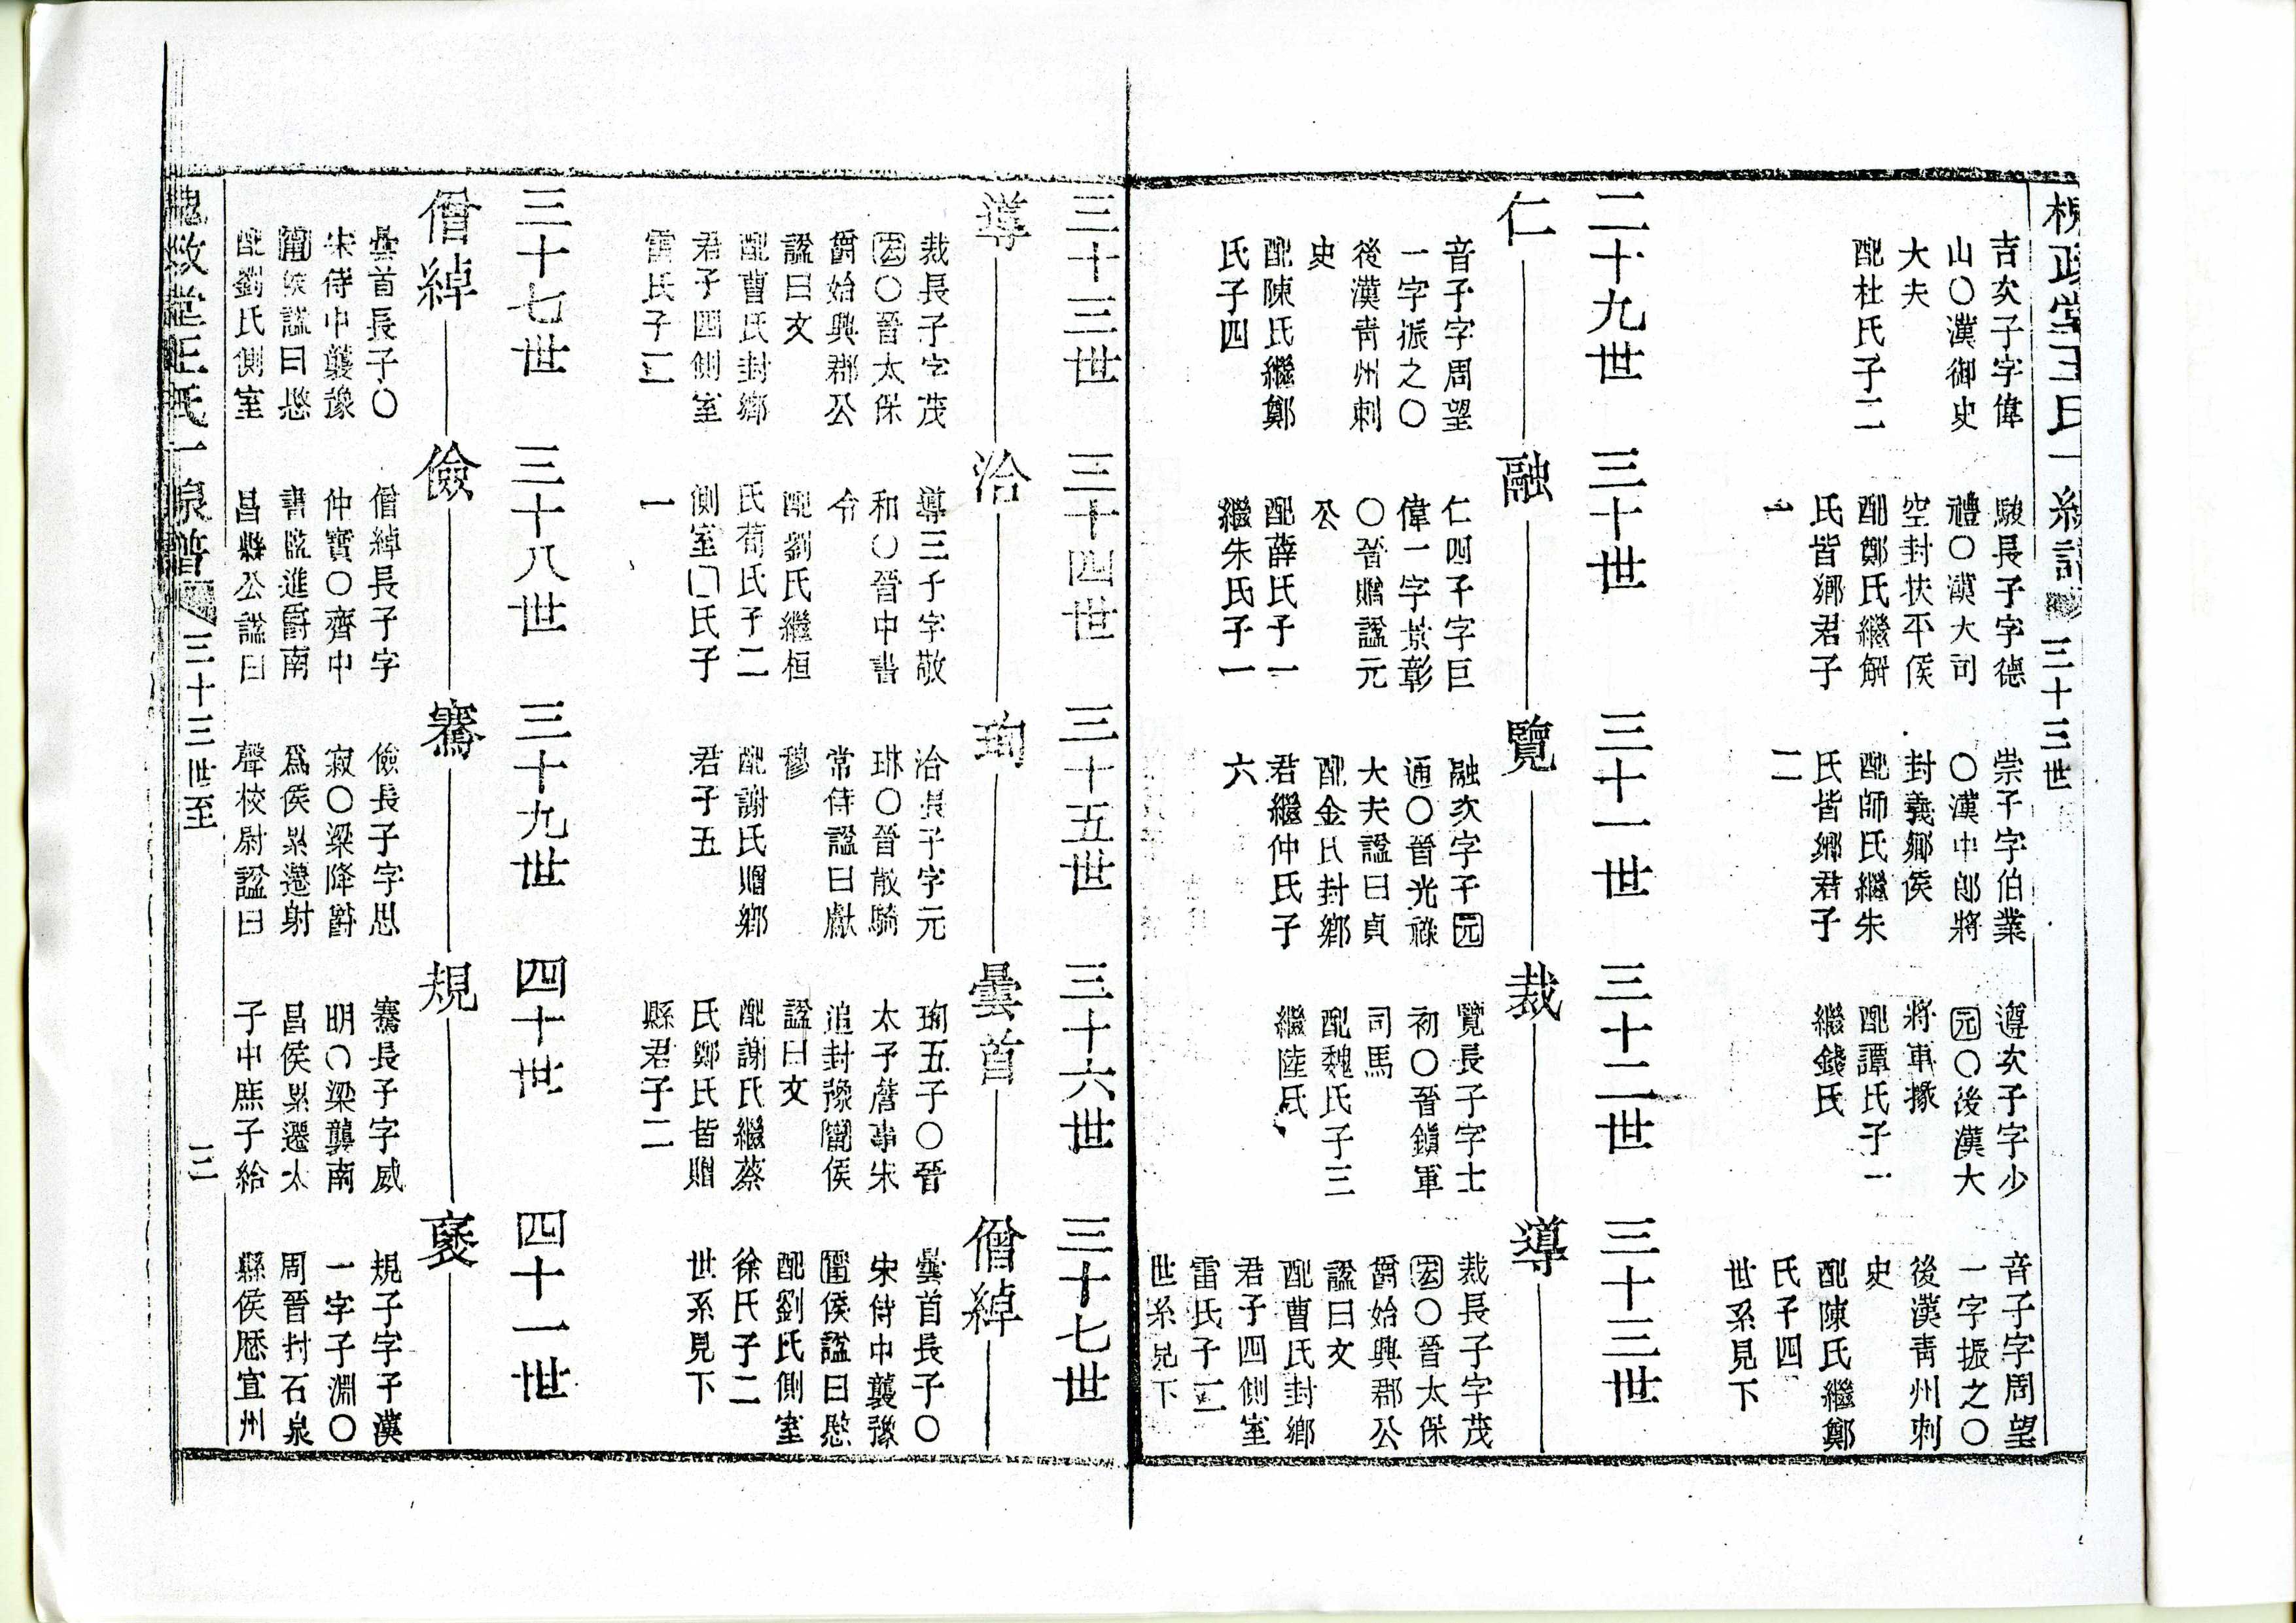 槐政堂王氏一線譜
三十三世
吉次子字偉
山〇漢御史
大夫
配杜氏子二
駿長子字德
禮〇漢大司
空封扶平侯
配鄭氏繼解
氏皆鄉君子
一
崇子字伯業
〇漢中郎將
封義鄉侯
配師氏繼朱
氏皆鄉君子
二
遵次子字少
元〇後漢大
將軍掾
配譚氏子一
繼錢氏
音子字周望
一字振之〇
後漢靑州刺
史
配陳氏繼鄭
氏子四
世系見下
二十九世
三十世
三十一世
三十二世
三十三世
仁
融
覽
裁
導
音子字周望
一字振之〇
後漢靑州刺
史
配陳氏繼鄭
氏子四
仁四子字巨
偉一字景彰
〇晉贈諡元
公
配薛氏子一
繼朱氏子一
融次子字元
通〇晉光祿
大夫諡曰貞
配金氏封鄉
君繼仲氏子
六
覽長子字士
初〇晉鎭軍
司馬
配魏氏子三
繼陸氏
裁長子字茂
宏〇晉太保
爵始興郡公
諡曰文
配曹氏封鄉
君子四側室
雷氏子二
世系見下
三十三世
三十四世
三十五世
三十六世
三十七世
導
洽
珣
曇首
僧綽
裁長子字茂
宏〇晉太保
爵始興郡公
諡曰文
配曹氏封鄉
君子四側室
雷氏子二
導三子字敬
和〇晉中書
令
配劉氏繼桓
氏荀氏子二
側室囗氏子
一
洽長子字元
琳〇晉散騎
常侍諡曰獻
穆
配謝氏贈鄉
君子五
珣五子〇晉
太子詹事宋
追封豫甯侯
諡曰文
配謝氏繼蔡
氏鄭氏皆贈
縣君子二
曇首長子〇
宋侍中襲豫
甯侯諡曰愍
配劉氏側室
徐氏子二
世系見下
三十七世
三十八世
三十九世
四十世
四十一世
僧綽
儉
騫
規
褒
曇首長子〇
宋侍中襲豫
甯侯諡曰愍
配劉氏側室
僧綽長子字
仲寶〇齊中
書監進爵南
昌縣公諡曰
儉長子字思
寂〇梁降爵
爲侯累遷射
聲校尉諡曰
騫長子字威
明〇梁襲南
昌侯累遷太
子中庶子給
規子字子漢
一字子淵〇
周晉封石泉
縣侯歷宜州
槐政堂王氏一線譜
三十三世至
三